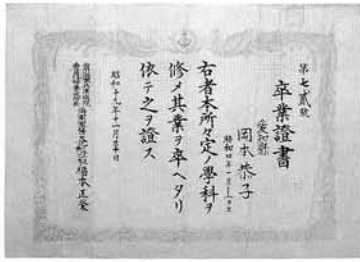 第七貳號
卒業證書
愛知縣
岡本恭子
昭和四年一月
右者本所々定ノ學科ヲ
修メ其業ヲ卒ヘタリ
依テ之ヲ證ス
昭和十九年十一月三十日
橋本正榮